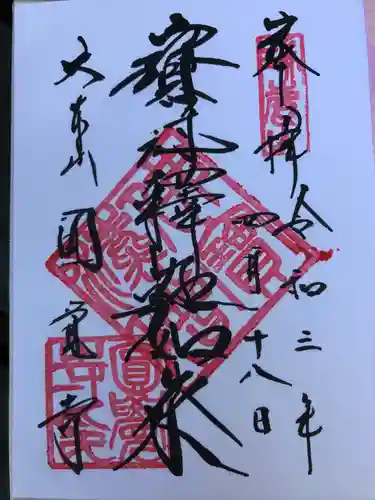 奉拝
令和三年
四月十八日
寳冠釋迦如来
大本山 円覚寺